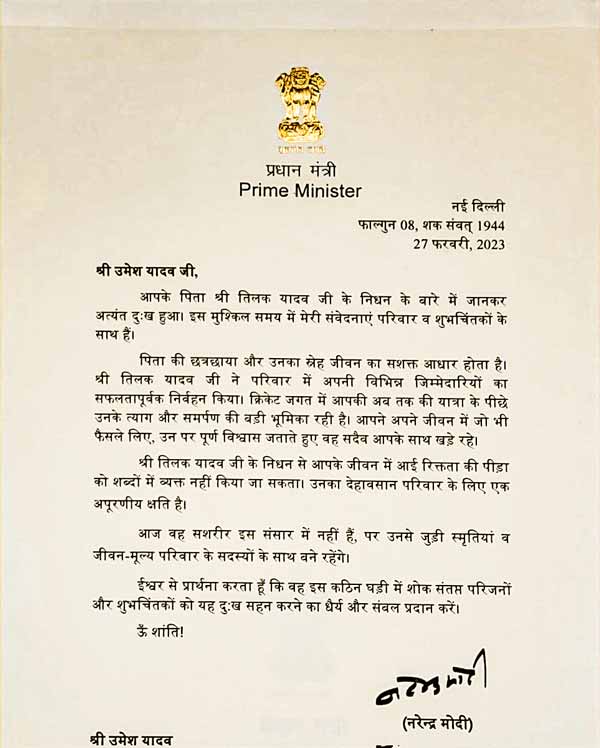 प्रधान मंत्री
Prime Minister
नई दिल्ली
फाल्गुन 08, शक संवत् 1944
27 फरवरी, 2023
श्री उमेश यादव जी,
आपके पिता श्री तिलक यादव जी के निधन के बारे में जानकर
अत्यंत दुःख हुआ। इस मुश्किल समय में मेरी संवेदनाएं परिवार व शुभचिंतकों के
साथ हैं।
पिता की छत्रछाया और उनका स्नेह जीवन का सशक्त आधार होता है।
श्री तिलक यादव जी ने परिवार में अपनी विभिन्न जिम्मेदारियों का
सफलतापूर्वक निर्वहन किया। क्रिकेट जगत में आपकी अब तक की यात्रा के पीछे
उनके त्याग और समर्पण की बड़ी भूमिका रही है। आपने अपने जीवन में जो भी
फैसले लिए, उन पर पूर्ण विश्वास जताते हुए वह सदैव आपके साथ खड़े रहे।
श्री तिलक यादव जी के निधन से आपके जीवन में आई रिक्तता की पीड़ा
को शब्दों में व्यक्त नहीं किया जा सकता। उनका देहावसान परिवार के लिए एक
अपूरणीय क्षति है।
आज वह सशरीर इस संसार में नहीं हैं, पर उनसे जुड़ी स्मृतियां व
जीवन-मूल्य परिवार के सदस्यों के साथ बने रहेंगे।
ईश्वर से प्रार्थना करता हूँ कि वह इस कठिन घड़ी में शोक संतप्त परिजनों
और शुभचिंतकों को यह दुःख सहन करने का धैर्य और संबल प्रदान करें।
ऊँ शांति!
नरेन्द्र मोदी
(नरेन्द्र मोदी)
श्री उमेश यादव